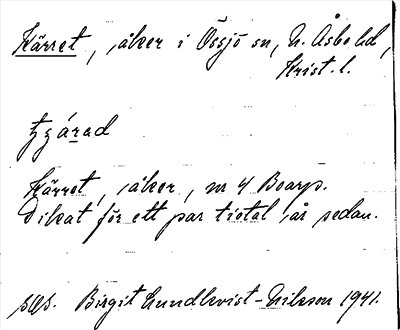 Kärret, åker i Össjö sn, N. Åsbo hd,
Krist. l.
Kärret, åker, nr 4 Boarp.
Dikat för ett par tiotal år sedan.
Birgit Lundkvist-Nilsson 1941.